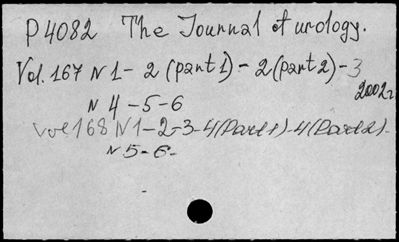 P4082 The Journal of urology.
Vol. 167 N 1 - 2 (part 1) - 2 (part 2) - 3
2002г
N 4 - 5 - 6
Vol 168 N 1 - 2 - 3 - 4 (Part 1) - 4 (Part 2) -
N 5 - 6 -